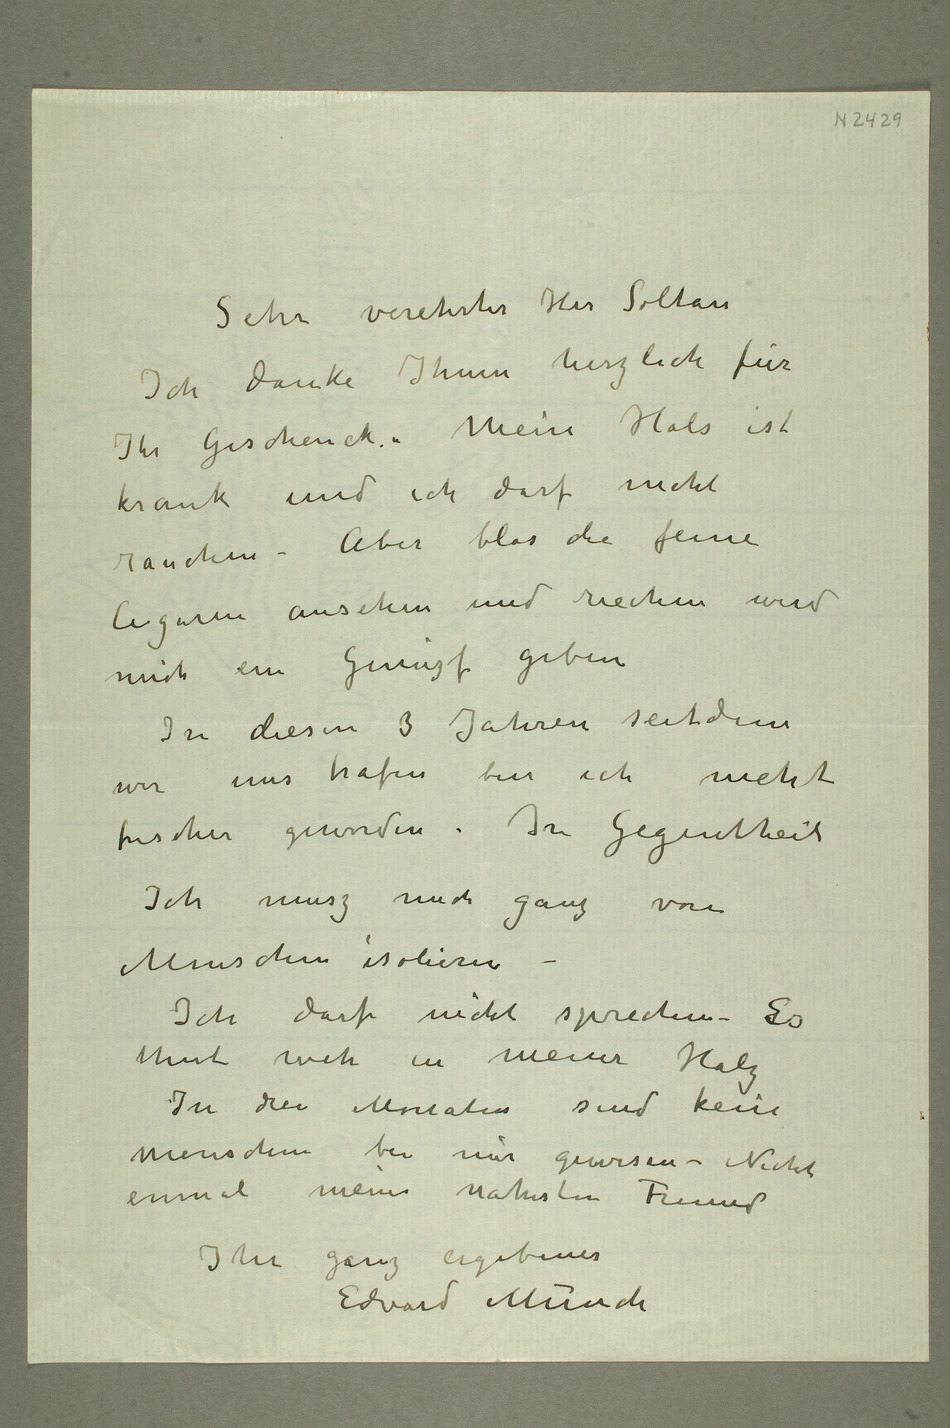 N 2429
Sehr verehrter Her Soltau
Ich danke Ihnen herzlich für
Ihr Geschenck. – Mein Hals ist
krank und ich darf nicht
rauchen – Aber blos die feine
Cigaren ansehen und riechen wird
mich ein Genüzf geben
In diesen 3 Jahren seitdem
wir uns trafen bin ich nicht
frischer geworden. In Gegentheil
Ich musz mich ganz von
Menschen isolieren –
Ich darf nicht sprechen – Es
thut weh in meiner Halz
In drei Monaten sind keine
menschen bei mir gewesen – Nicht
einmal meine nahesten Freund
Ihr ganz ergebener
Edvard Munch